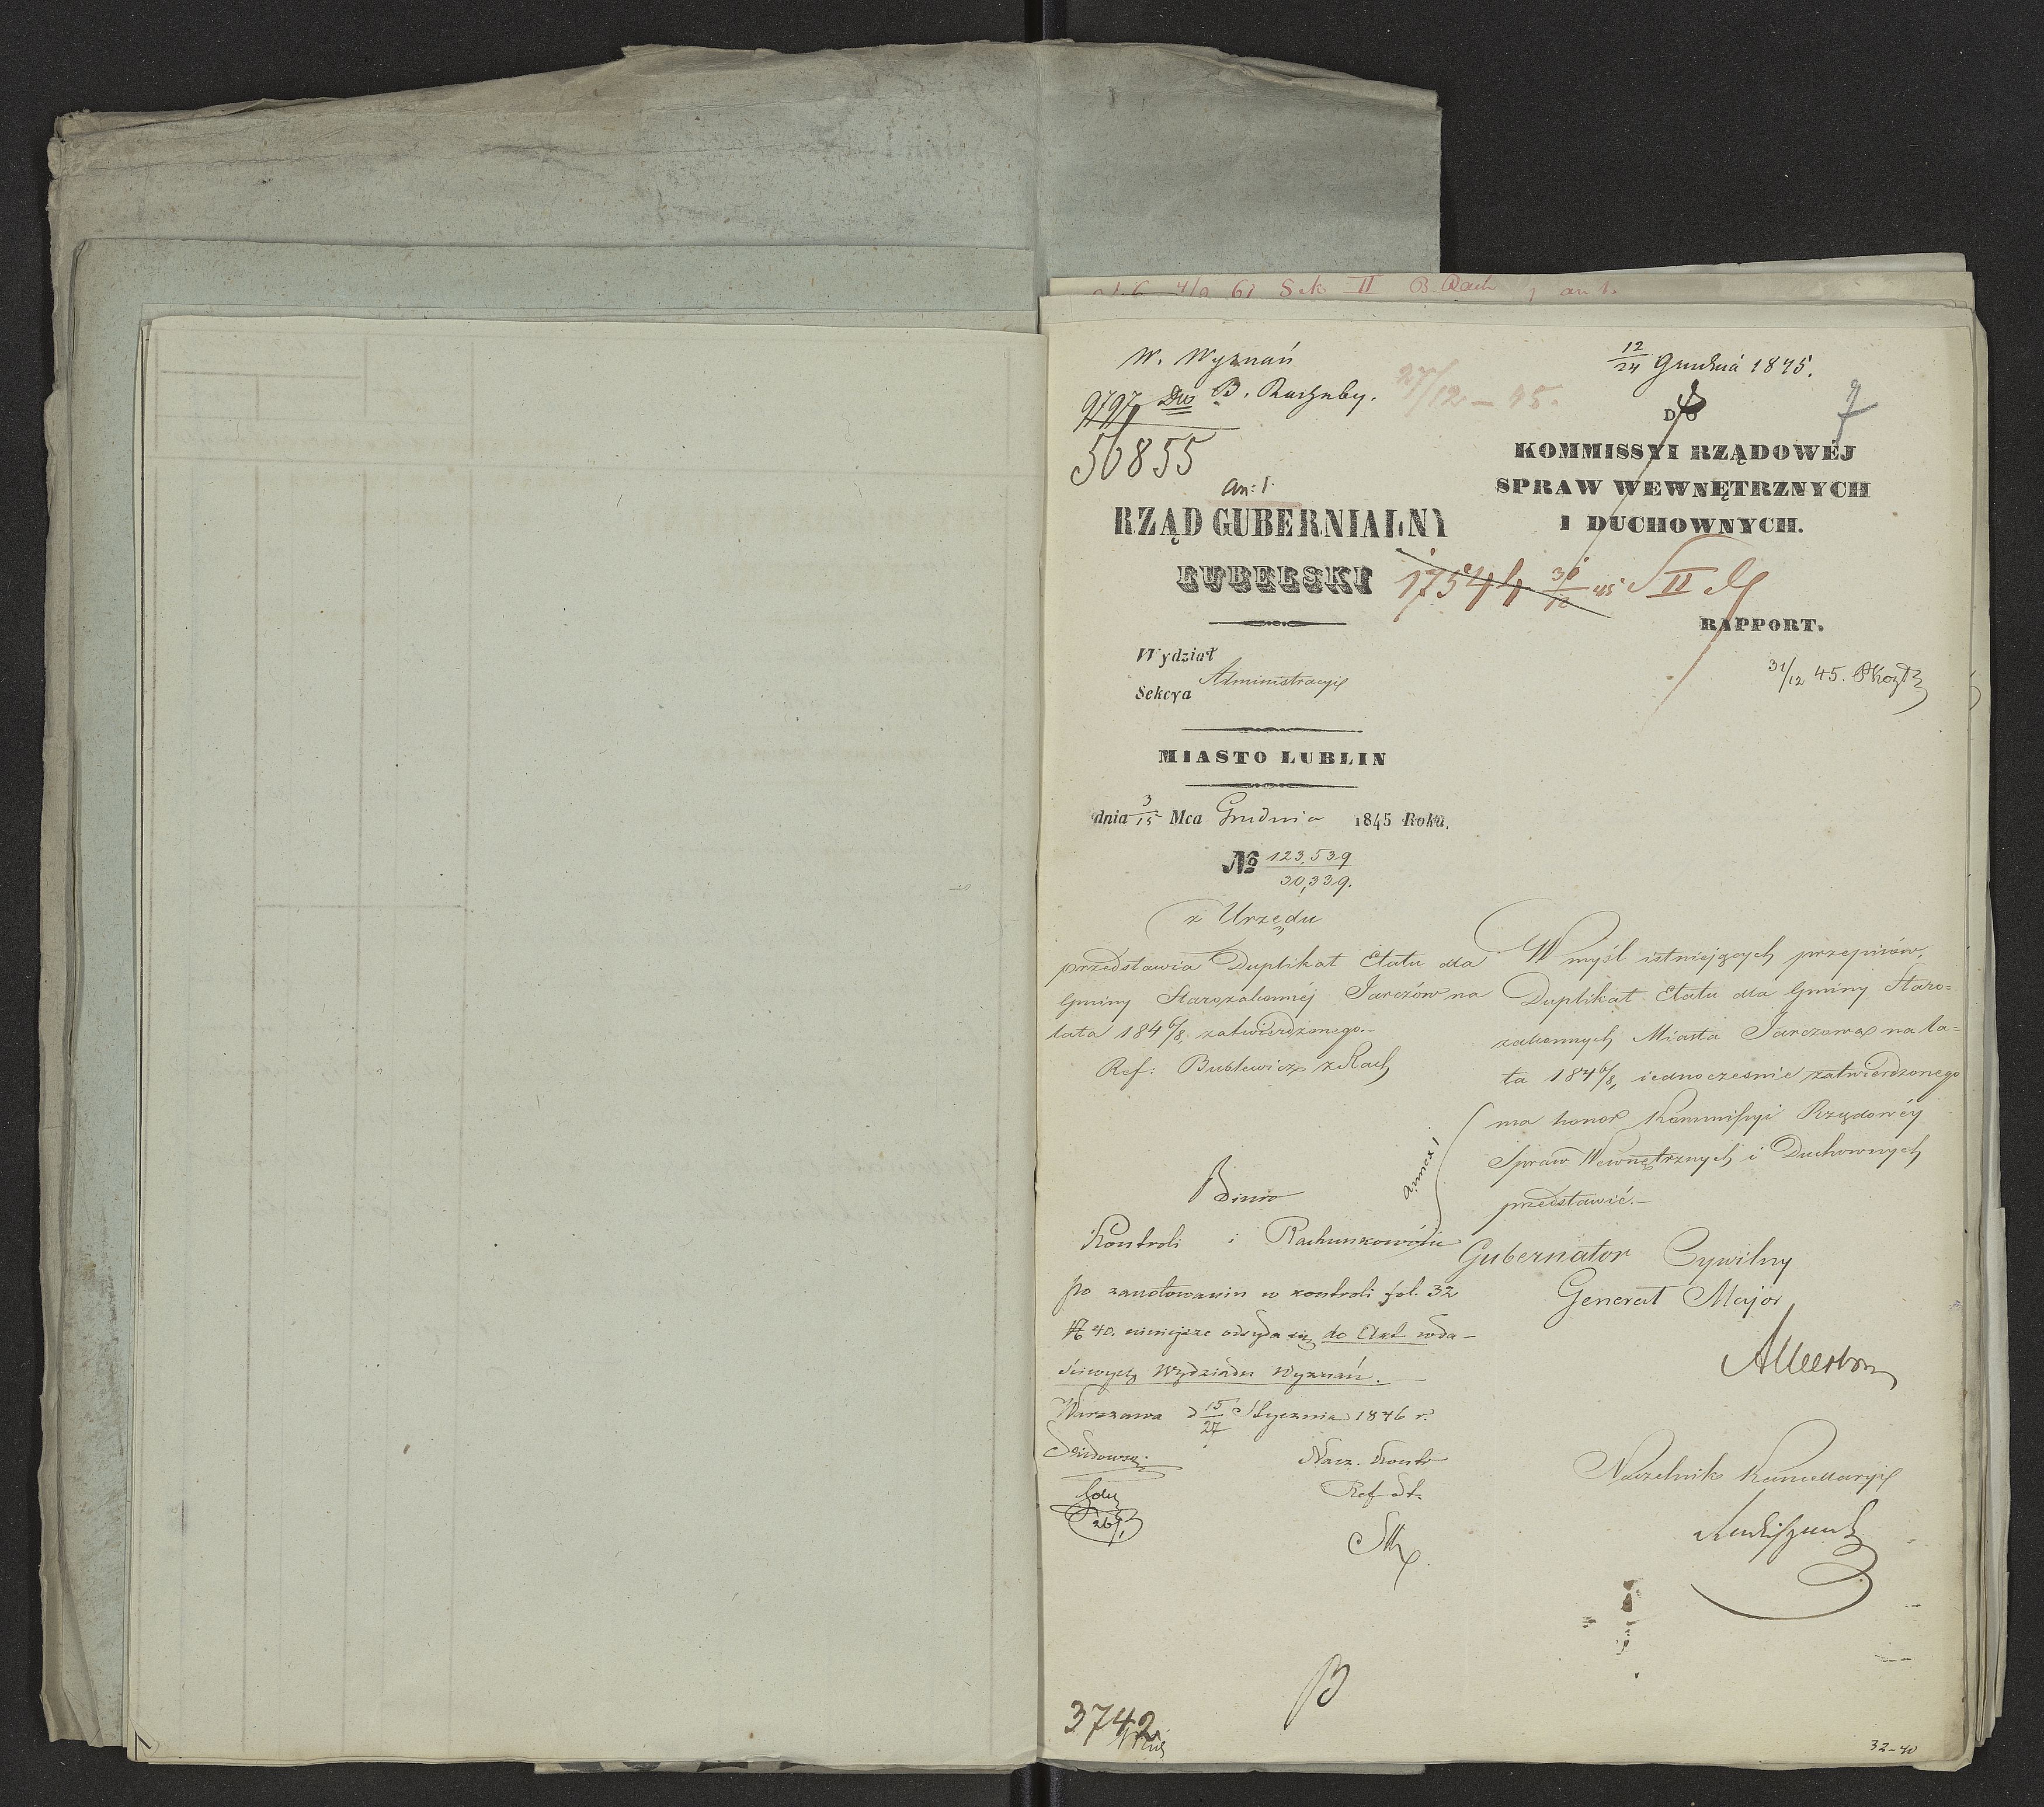 Sek II B. Rach
W. Wyznań
9797 Do B. Rachuby.
56855
27/12 – 45.
12/24 Grudnia 1845.
7
an: 1.
DO
KOMMISSYI RZĄDOWÉJ
SPRAW WEWNĘTRZNYCH
I DUCHOWNYCH.
RZĄD GUBERNIALNY
LUBELSKI
17544 30/12 45 S II
RAPPORT.
31/12 45.
Wydział
Sekcya
Administracyi
MIASTO LUBLIN
dnia 3/15 Mca Grudnia 1845 Roku.
No 123,539
30,339.
z Urzędu
przedstawia Duplikat Etatu dla
Gminy Starozakonnéj Jarczów na
lata 1846/8, zatwierdzonego.–
Ref: Bublewicz z Rach
W myśl istniejących przepisów,
Duplikat Etatu dla Gminy Staro=
zakonnych Miasta Jarczowa na la=
ta 1846/8, iednocześnie zatwierdzonego
ma honor Kommissyi Rządowéy
Spraw Wewnętrznych i Duchownych
przedstawić.–
annex 1
Gubernator Cywilny
Generał Major
Naczelnik Kancellaryi
Biuro
Kontroli i Rachunkowości
po zanotowaniu w kontroli fol. 32
No 40. niniejsze odsyła się do Akt wła–
ściwych Wydziału Wyznań.
Warszawa d 15/27 Stycznia 1846 r.
Nacz. Kontr
Ref St.
26/1
B
3742
32–40